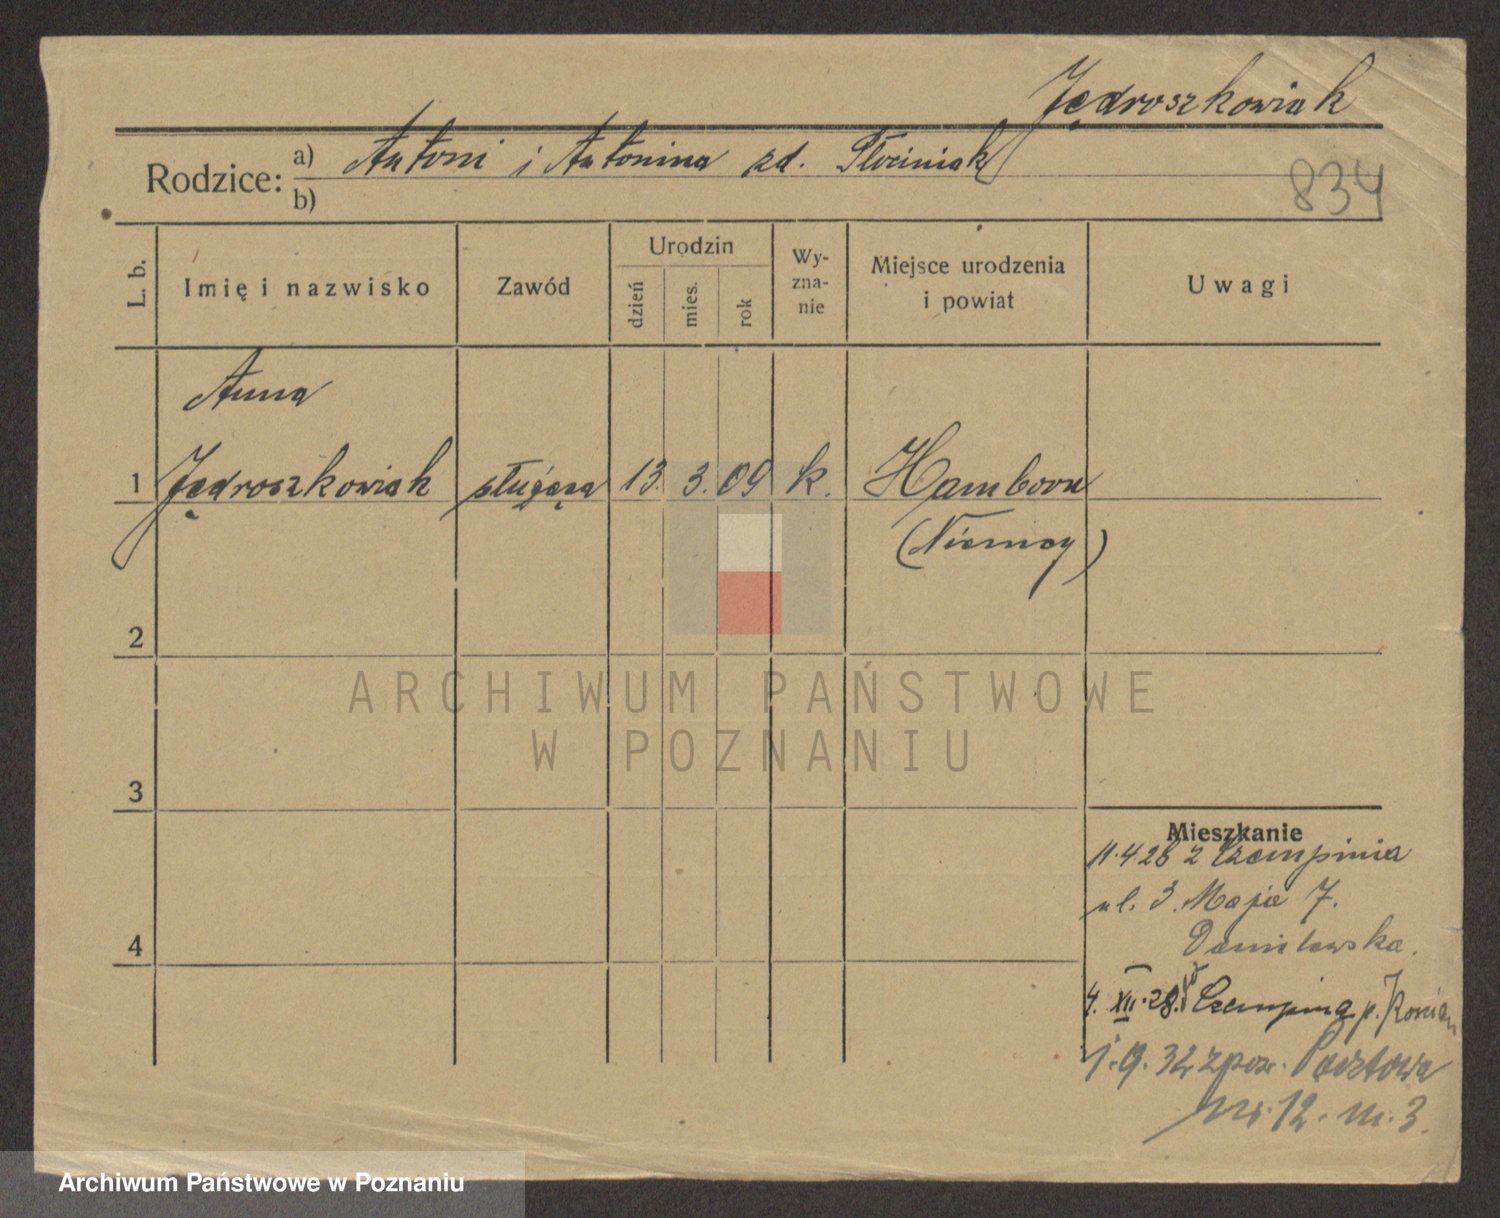 Jędroszkowiak
Rodzice: a) Antoni i Antonina zd.
b)
834
L. b. Imię i nazwisko Zawód Urodzin dzień mies. rok Wy-zna-nie Miejsce urodzenia i powiat Uwagi
Anna
1 Jędroszkowiak służąca 13. 3. 09 k. Hamborn
(Niemcy)
2
3
4
Mieszkanie
11.4.28 z Czempinia
ul. 3 Maja 7.
4. XII. 28. Czempina p.
1.9.32 z poz. Pocztowa
nr. 12. m. 3.
ARCHIWUM PAŃSTWOWE
W POZNANIU
Archiwum Państwowe w Poznaniu